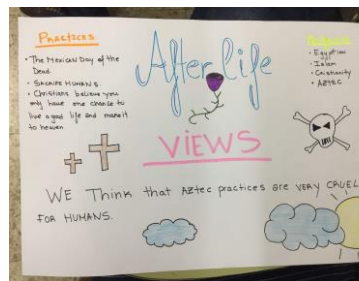 PRACTICES
• The Mexican Day of the
Dead.
• SACRIFICE HUMANS.
• Christians believe you
only have one chance to
live a good life and make it
to heaven
Afterlife
VIEWS
• Egyptian
• Islam
• Cristianity
• AZTEC
WE Think that AZtec practices are VERY CRUEL
FOR HUMANS.